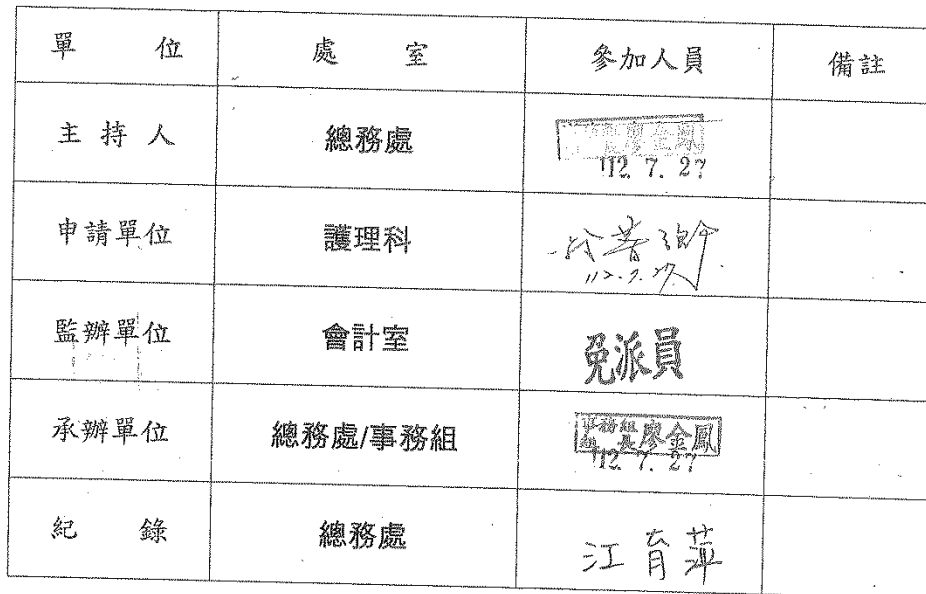 單 位 處 室 參加人員 備註
主 持 人 總務處 廖金鳳
112. 7. 27
申請單位 護理科
112.7.27
監辦單位 會計室 免派員
承辦單位 總務處/事務組 事務組組長廖金鳳
112. 7. 27
紀 錄 總務處 江育萍